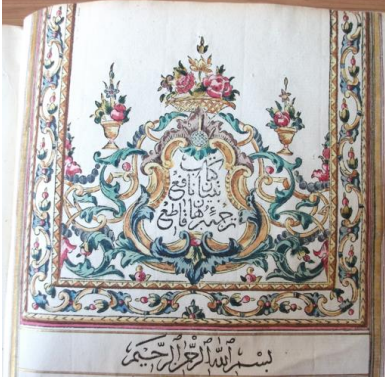 كتاب
تبيان نافع
ترجمهٔ برهان قاطع
بسم الله الرحمن الرحيم